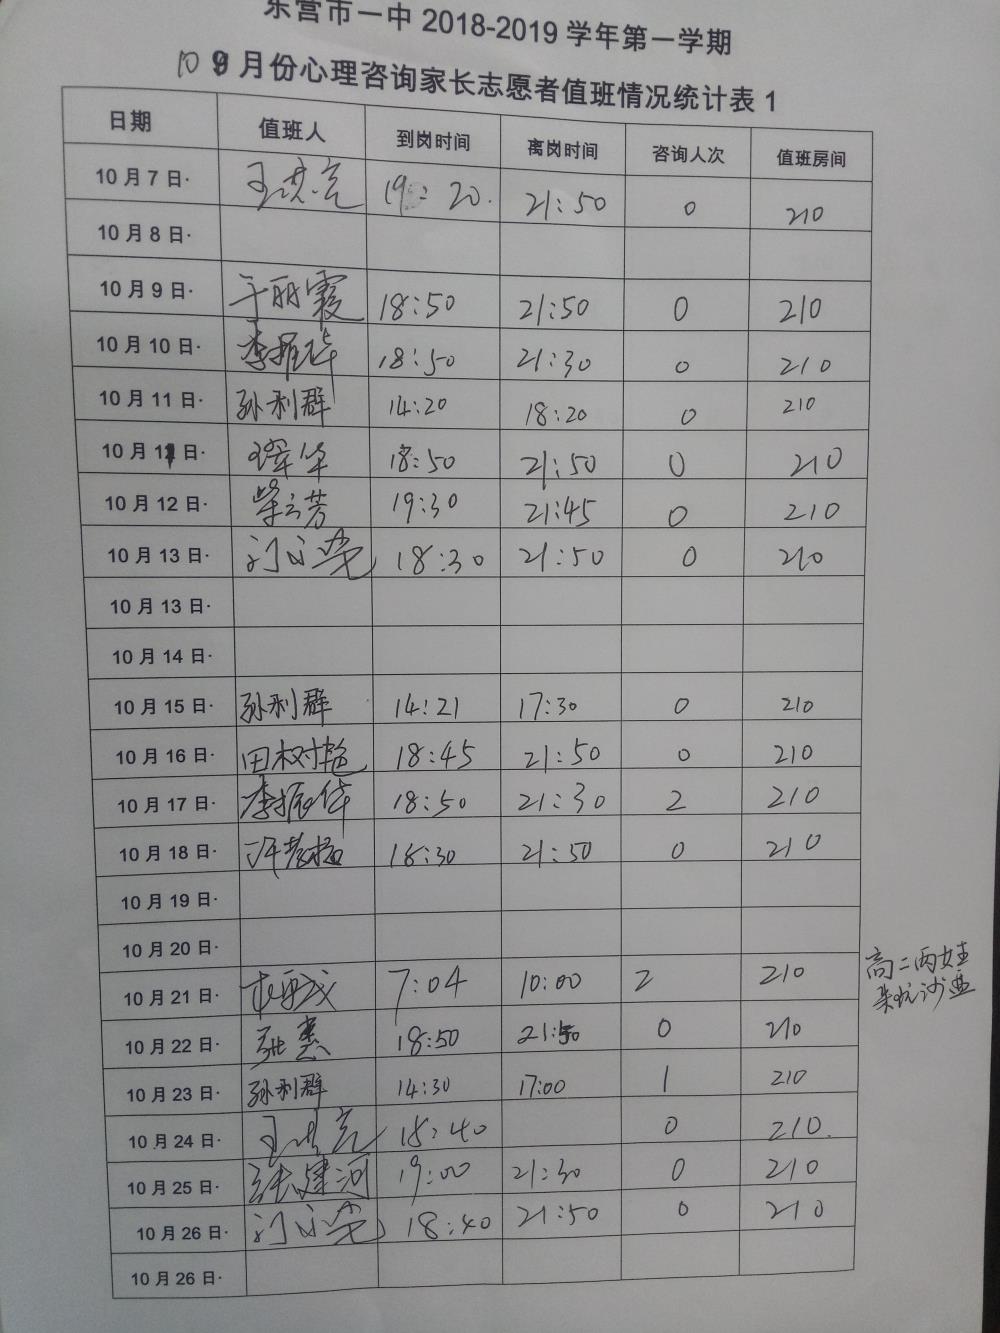 东营市一中 2018-2019 学年第一学期
10 9 月份心理咨询家长志愿者值班情况统计表 1
日期 值班人 到岗时间 离岗时间 咨询人次 值班房间
10 月 7 日 19:20 21:50 0 210
10 月 8 日
10 月 9 日 于丽霞 18:50 21:50 0 210
10 月 10 日 李振华 18:50 21:30 0 210
10 月 11 日 孙利群 14:20 18:20 0 210
10 月 11 日 18:50 21:50 0 210
10 月 12 日 柴云芳 19:30 21:45 0 210
10 月 13 日 18:30 21:50 0 210
10 月 13 日
10 月 14 日
10 月 15 日 孙利群 14:21 17:30 0 210
10 月 16 日 田树艳 18:45 21:50 0 210
10 月 17 日 李振华 18:50 21:30 2 210
10 月 18 日 18:30 21:50 0 210
10 月 19 日
10 月 20 日
10 月 21 日 7:04 10:00 2 210 高二两女生
10 月 22 日 18:50 21:50 0 210
10 月 23 日 孙利群 14:30 17:00 1 210
10 月 24 日 18:40 0 210
10 月 25 日 张建河 19:00 21:30 0 210
10 月 26 日 18:40 21:50 0 210
10 月 26 日